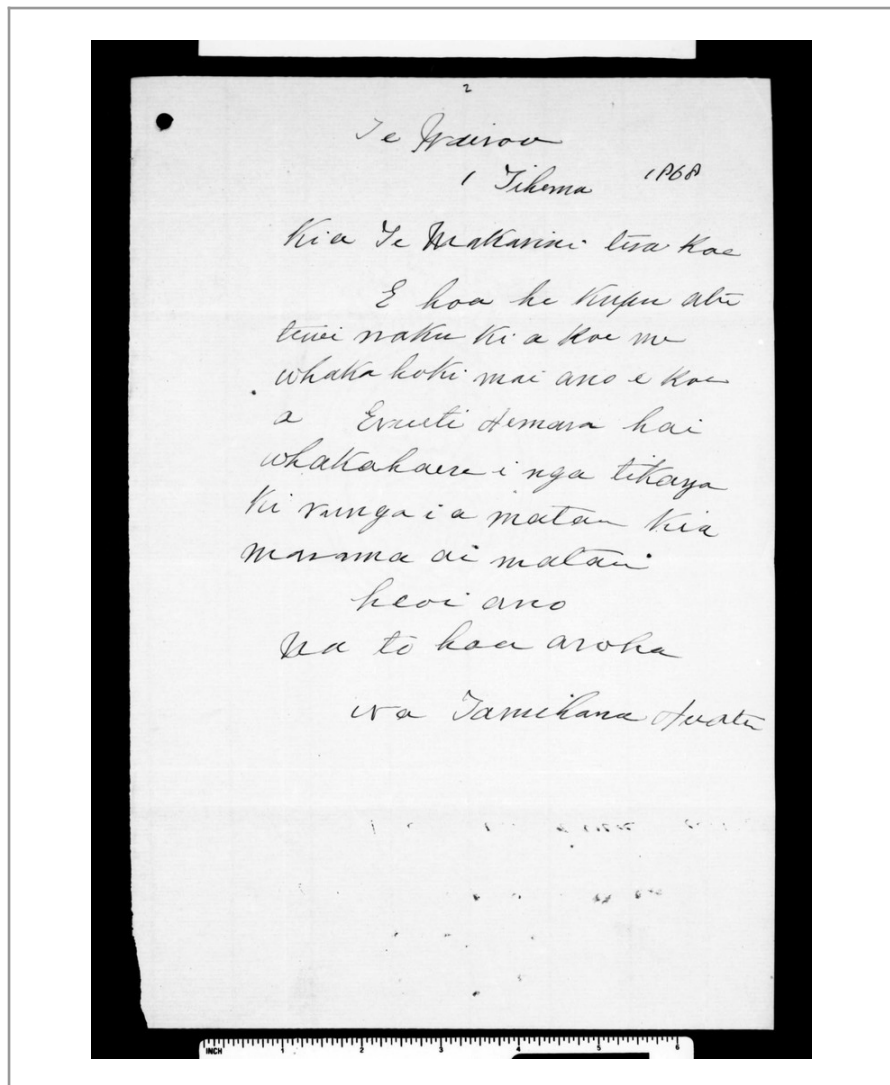 2
Te Wairoa
1 Tihema 1868
Kia Te Makarini tena Koe
E hoa he Kupu atu
tenei naku Ki a Koe me
whaka hoki mai ano e Koe
a Erueti Hemara hai
whakahaere i nga tikanga
Ki runga i a matau Kia
marama ai matau
heoi ano
Na to hoa aroha
na Tamihana Huata
INCH 1 2 3 4 5 6